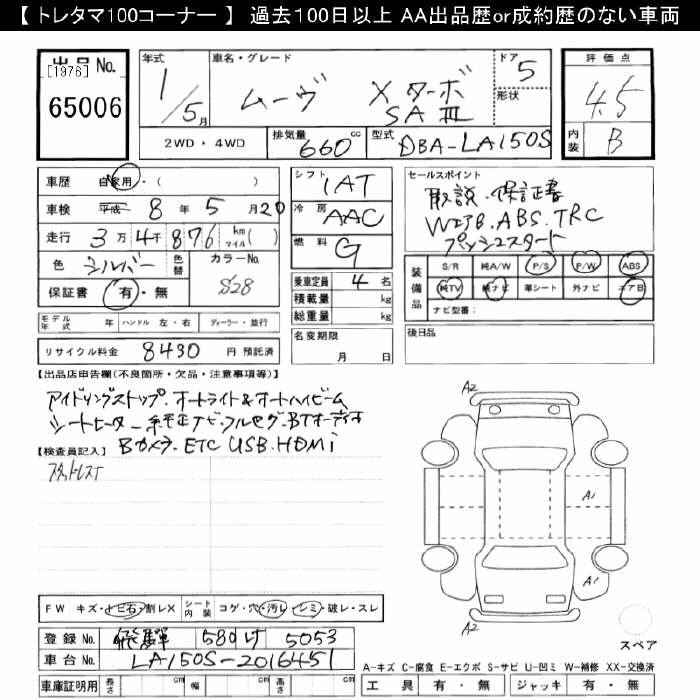 【 トレタマ100コーナー 】 過去100日以上 AA出品歴or成約歴のない車両
出品 No.
[1976]
65006
年式 1/5月
車名・グレード ムーヴ Xターボ SAⅢ
ドア 5
形状
評価点 4.5
内装 B
2WD・4WD
排気量 660 cc
型式 DBA-LA150S
車歴 自家用・( )
車検 平成 8年 5月 20
走行 3万4千876 km マイル( )
色 シルバー 色替
カラーNo. S28
保証書 有・無
シフト IAT
冷房 AAC
燃料 G
乗車定員 4 名
積載量 kg
総重量 kg
名変期限 月 日
セールスポイント
取説・保証書
WエアB.ABS.TRC
プッシュスタート
装備品
S/R 純A/W P/S P/W ABS
純TV 純ナビ 革シート 外ナビ エアB
ナビ型番:
後日品
モデル年式 年 ハンドル 左・右 ディーラー・並行
リサイクル料金 8430 円 預託済
【出品店申告欄(不良箇所・欠品・注意事項等)】
アイドリングストップ.オートライト&オートハイビーム
シートヒーター 純正ナビ.フルセグ.BTオーディオ
Bカメラ.ETC USB.HDMi
【検査員記入】
スタッドレスT
A2
A1
A1
A2
スペア
FW キズ・トビ石・割レX
シート内装 コゲ・穴・汚レ・シミ・破レ・スレ
登録 No. 飛騨 580 け 5053
車台 No. LA150S-2016451
車庫証明用 長さ cm 幅 cm 高さ cm
A-キズ C-腐食 E-エクボ S-サビ U-凹ミ W-補修 XX-交換済
工具 有・無 ジャッキ 有・無